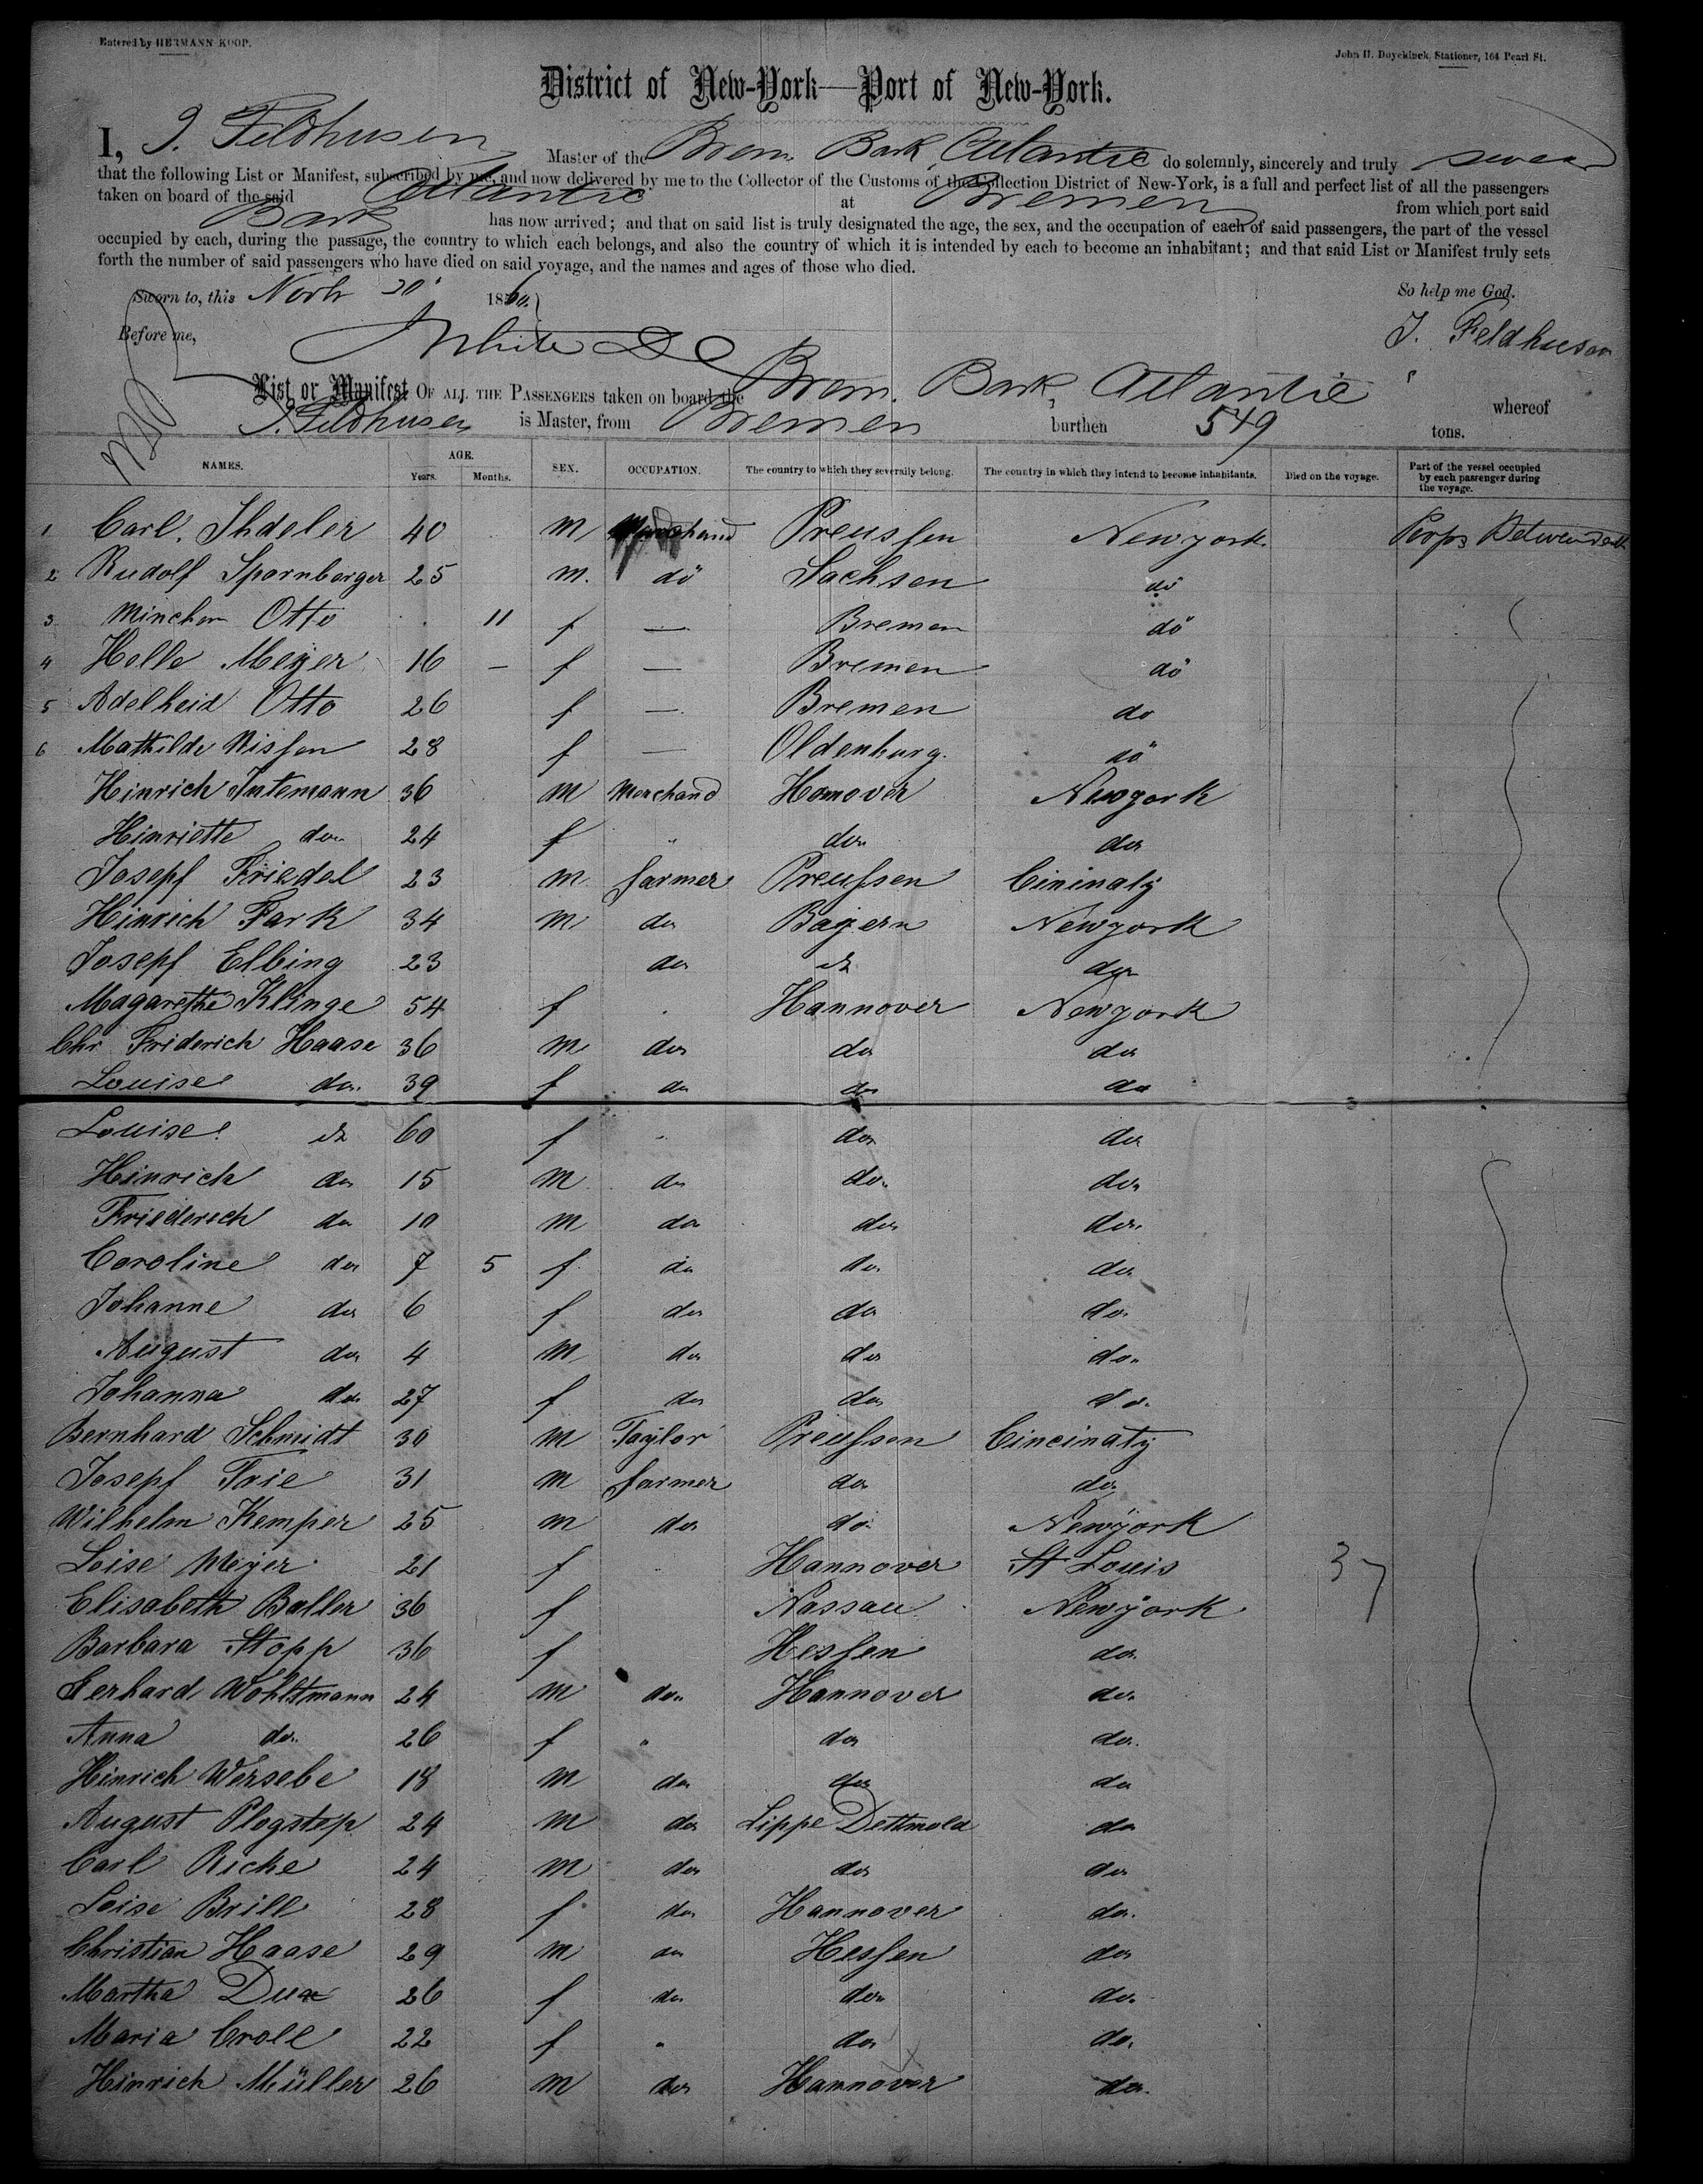 Entered by HERMANN KOOP.
John H. Duyckinck, Stationer, 164 Pearl St.
District of New-York—Port of New-York.
I, J. Feldhusen Master of the Brem. Bark Atlantic do solemnly, sincerely and truly swear
that the following List or Manifest, subscribed by me, and now delivered by me to the Collector of the Customs of the Collection District of New-York, is a full and perfect list of all the passengers
taken on board of the said Atlantic at Bremen from which port said
Bark has now arrived; and that on said list is truly designated the age, the sex, and the occupation of each of said passengers, the part of the vessel
occupied by each, during the passage, the country to which each belongs, and also the country of which it is intended by each to become an inhabitant; and that said List or Manifest truly sets
forth the number of said passengers who have died on said voyage, and the names and ages of those who died.
Sworn to, this 20 1860. So help me God.
Before me, J. Feldhusen
List or Manifest OF ALL THE PASSENGERS taken on board the Brem. Bark, Atlantic whereof
J. Feldhusen is Master, from Bremen burthen 549 tons.
NAMES. AGE. Years. Months. SEX. OCCUPATION. The country to which they severally belong. The country in which they intend to become inhabitants. Died on the voyage. Part of the vessel occupied by each passenger during the voyage.
1 Carl. Ihdeler 40 m Merchand Preussen Newyork.
2 Rudolf Spornberger 25 m. do Sachsen do
3 Minchen Otto 11 f — Bremen do
4 Helle Meyer 16 — f — Bremen do
5 Adelheid Otto 26 f — Bremen do
6 Mathilde Nissen 28 f — Oldenburg. do
Hinrich Intemann 36 m Merchand Hanover Newyork
Hinriette do 24 f " do do
Josepf Friedel 23 m farmer Preussen Cininaty
Hinrich Fark 34 m do Bayern Newyork
Josepf Elbing 23 do do do
Magarethe Klinge 54 f Hannover Newyork
Chr Friderich Haase 36 m do do do
Louise do. 39 f do do do
Louise do 60 f do do
Hinrich do 15 m do do do
Friederich do 10 m do do do
Caroline do 7 5 f do do do
Johanne do 6 f do do do
August do 4 m do do do
Johanna do 27 f do do do
Bernhard Schmidt 30 m Taylor Preussen Cincinaty
Josepf Frie 31 m farmer do do
Wilhelm Kemper 25 m do do Newyork
Loise Meyer 21 f Hannover St Louis 37
Elisabeth Baller 36 f Nassau Newyork
Barbara Stopp 36 f Hessen do
Gerhard Wohltmann 24 m do Hannover do
Anna do 26 f " do do
Hinrich Wersebe 18 m do do do
August Plogstep 24 m do Lippe Dettmold do
Carl Ricke 24 m do do do
Loise Brill 28 f do Hannover do
Christian Haase 29 m do Hessen do
Martha Dux 26 f do do do
Maria Croll 22 f " do do
Hinrich Müller 26 m do Hannover do